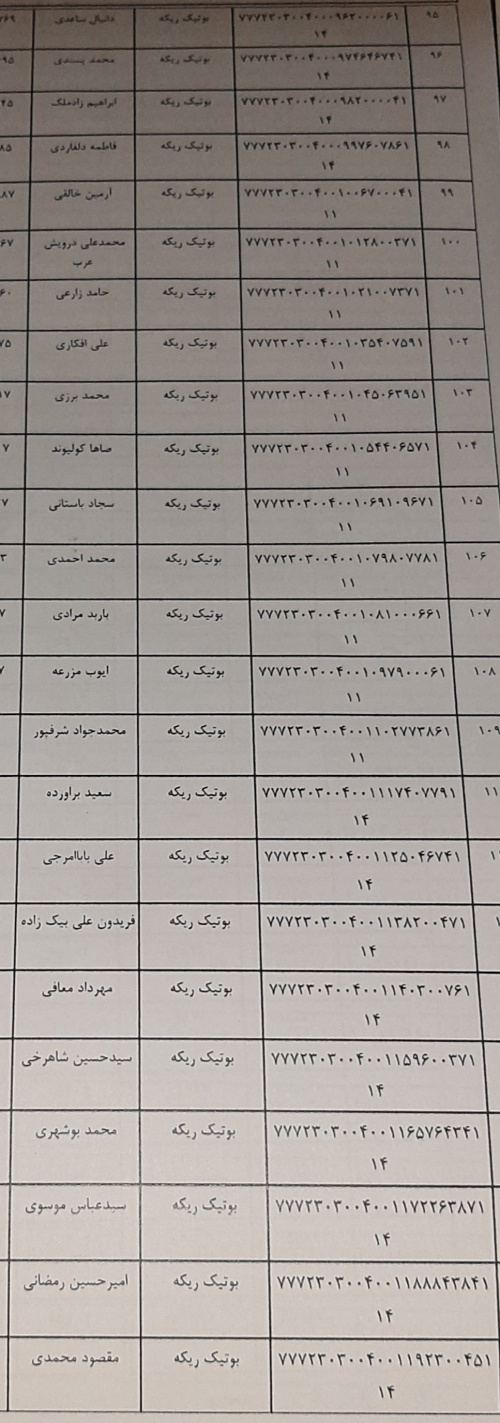 ۹۵ ۷۷۷۲۳۰۳۰۰۴۰۰۰۹۶۲۰۰۰۰۶۱ بوتیک ریکه دانیال ساعدی ۷۶۹
۱۴
۹۶ ۷۷۷۲۳۰۳۰۰۴۰۰۰۹۷۴۶۴۶۷۴۱ بوتیک ریکه محمد پسندی ۹۵
۱۴
۹۷ ۷۷۷۲۳۰۳۰۰۴۰۰۰۹۸۲۰۰۰۰۴۱ بوتیک ریکه ابراهیم زادملک ۴۵
۱۴
۹۸ ۷۷۷۲۳۰۳۰۰۴۰۰۰۹۹۷۶۰۷۸۶۱ بوتیک ریکه فاطمه دلفاردی ۸۵
۱۴
۹۹ ۷۷۷۲۳۰۳۰۰۴۰۰۱۰۰۶۷۰۰۰۴۱ بوتیک ریکه آرمین خالقی ۸۷
۱۱
۱۰۰ ۷۷۷۲۳۰۳۰۰۴۰۰۱۰۱۲۸۰۰۳۷۱ بوتیک ریکه محمدعلی درویش ۶۷
۱۱ عرب
۱۰۱ ۷۷۷۲۳۰۳۰۰۴۰۰۱۰۲۱۰۰۷۳۷۱ بوتیک ریکه حامد زارعی ۶۰
۱۱
۱۰۲ ۷۷۷۲۳۰۳۰۰۴۰۰۱۰۳۵۴۰۷۵۹۱ بوتیک ریکه علی افکاری ۷۵
۱۱
۱۰۳ ۷۷۷۲۳۰۳۰۰۴۰۰۱۰۴۵۰۶۳۹۵۱ بوتیک ریکه محمد برزی ۱۷
۱۱
۱۰۴ ۷۷۷۲۳۰۳۰۰۴۰۰۱۰۵۴۴۰۶۵۷۱ بوتیک ریکه صاها کولیوند ۷
۱۱
۱۰۵ ۷۷۷۲۳۰۳۰۰۴۰۰۱۰۶۹۱۰۹۶۷۱ بوتیک ریکه سجاد باستانی ۷
۱۱
۱۰۶ ۷۷۷۲۳۰۳۰۰۴۰۰۱۰۷۹۸۰۷۷۸۱ بوتیک ریکه محمد احمدی ۳
۱۱
۱۰۷ ۷۷۷۲۳۰۳۰۰۴۰۰۱۰۸۱۰۰۰۶۶۱ بوتیک ریکه باربد مرادی ۷
۱۱
۱۰۸ ۷۷۷۲۳۰۳۰۰۴۰۰۱۰۹۷۹۰۰۰۶۱ بوتیک ریکه ایوب مزرعه ۷
۱۱
۱۰۹ ۷۷۷۲۳۰۳۰۰۴۰۰۱۱۰۲۷۷۳۸۶۱ بوتیک ریکه محمدجواد شرفپور
۱۱
۱۱ ۷۷۷۲۳۰۳۰۰۴۰۰۱۱۱۷۴۰۷۷۹۱ بوتیک ریکه سعید براورده
۱۴
۱ ۷۷۷۲۳۰۳۰۰۴۰۰۱۱۲۵۰۴۶۷۴۱ بوتیک ریکه علی باباامرجی
۱۴
۷۷۷۲۳۰۳۰۰۴۰۰۱۱۳۸۲۰۰۴۷۱ بوتیک ریکه فریدون علی بیک زاده
۱۴
۷۷۷۲۳۰۳۰۰۴۰۰۱۱۴۰۳۰۰۷۶۱ بوتیک ریکه مهرداد معافی
۱۴
۷۷۷۲۳۰۳۰۰۴۰۰۱۱۵۹۶۰۰۳۷۱ بوتیک ریکه سیدحسین شاهرخی
۱۴
۷۷۷۲۳۰۳۰۰۴۰۰۱۱۶۵۷۶۴۳۴۱ بوتیک ریکه محمد بوشهری
۱۴
۷۷۷۲۳۰۳۰۰۴۰۰۱۱۷۲۲۶۳۸۷۱ بوتیک ریکه سیدعباس موسوی
۱۴
۷۷۷۲۳۰۳۰۰۴۰۰۱۱۸۸۸۴۳۸۴۱ بوتیک ریکه امیرحسین رمضانی
۱۴
۷۷۷۲۳۰۳۰۰۴۰۰۱۱۹۲۳۰۰۴۵۱ بوتیک ریکه مقصود محمدی
۱۴